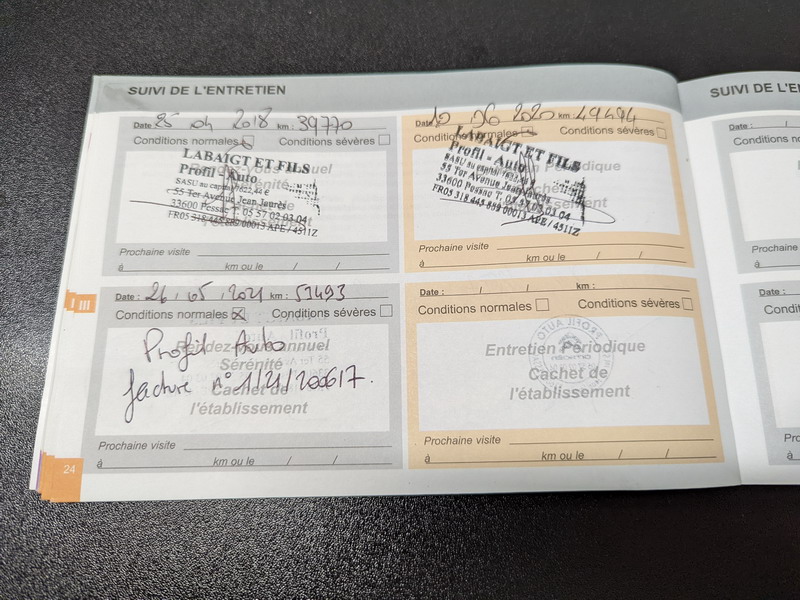 SUIVI DE L'ENTRETIEN
Date 25 04 2018 km: 39770
Conditions normales Conditions sévères
LABAIGT ET FILS
Profil - Auto
55 Ter Avenue Jean Jaurès
33600 Pessac T. 05 57 02 03 04
FR05 318 445 889 00013 APE / 4511Z
Prochaine visite
à km ou le / /
Date 10 06 2020 km: 49494
Conditions normales Conditions sévères
LABAIGT ET FILS
Profil - Auto
Entretien Périodique
55 Ter Avenue Jean Jaurès
33600 Pessac T. 05 57 02 03 04
FR05 318 445 889 00013 APE / 4511Z
Prochaine visite
à km ou le / /
Date: 26 / 05 / 2021 km: 53493
Conditions normales Conditions sévères
Profil Auto
Rendez-vous annuel
Sérénité
facture n° 1/21/200617.
Cachet de
l'établissement
Prochaine visite
à km ou le / /
Date: / / km:
Conditions normales Conditions sévères
Entretien Périodique
Cachet de
l'établissement
Prochaine visite
à km ou le / /
24
I III
SUIVI DE L'E
Date: / /
Conditions nor
Prochaine visite
à
Date: /
Conditions
Prochaine
à